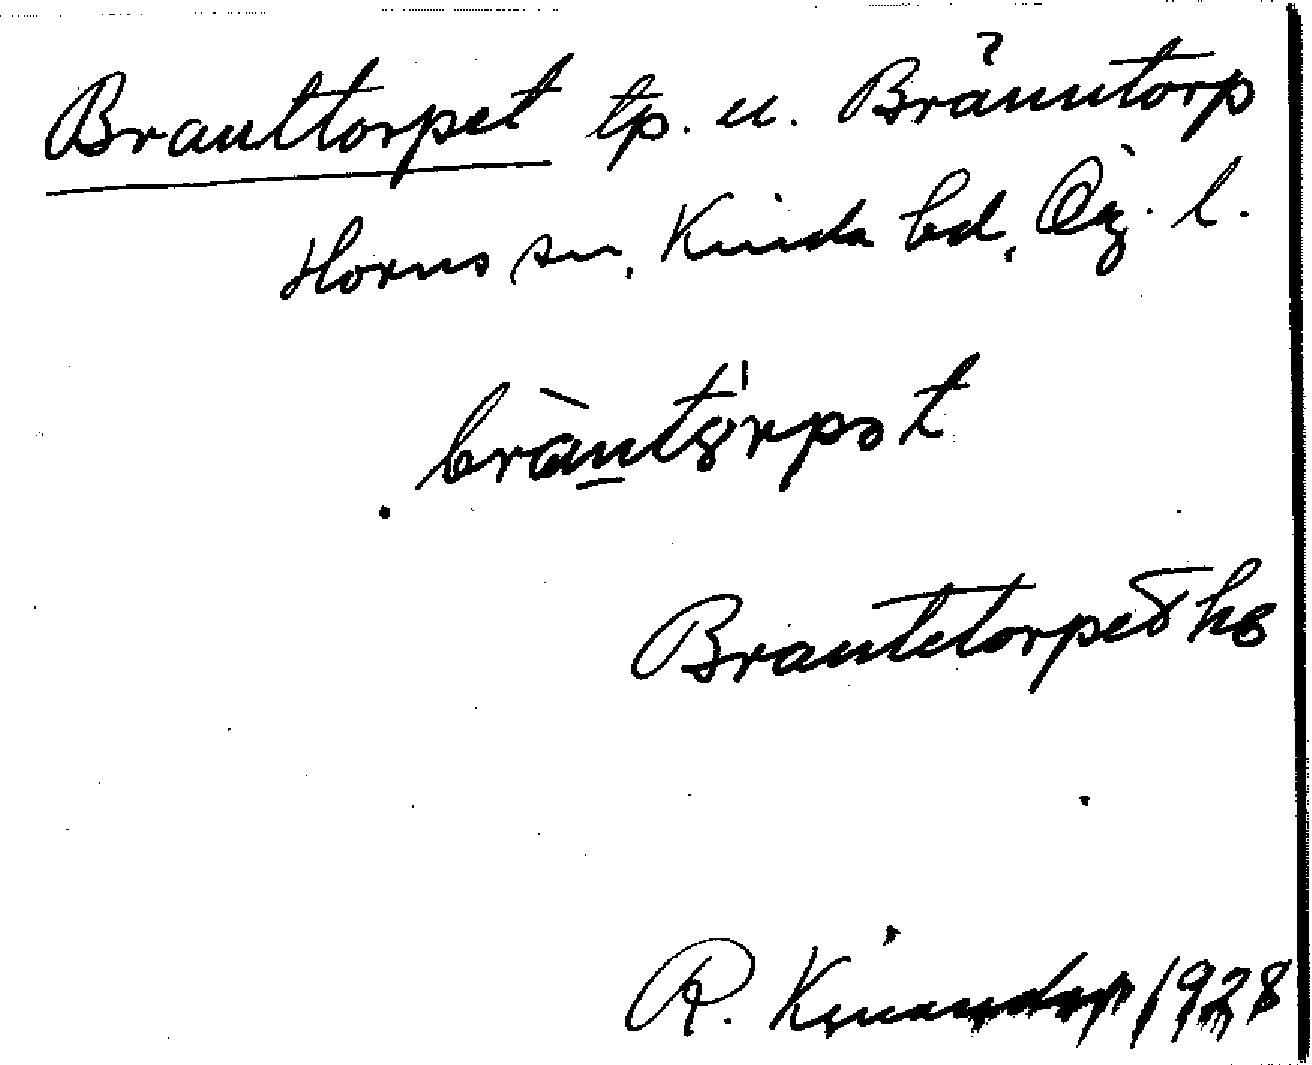 Branttorpet tp. u. Bränntorp ?
Horns sn, Kinda hd, Ög. l.
bràntȯrpət
Brantetorpet hs
R. Kinander 1928